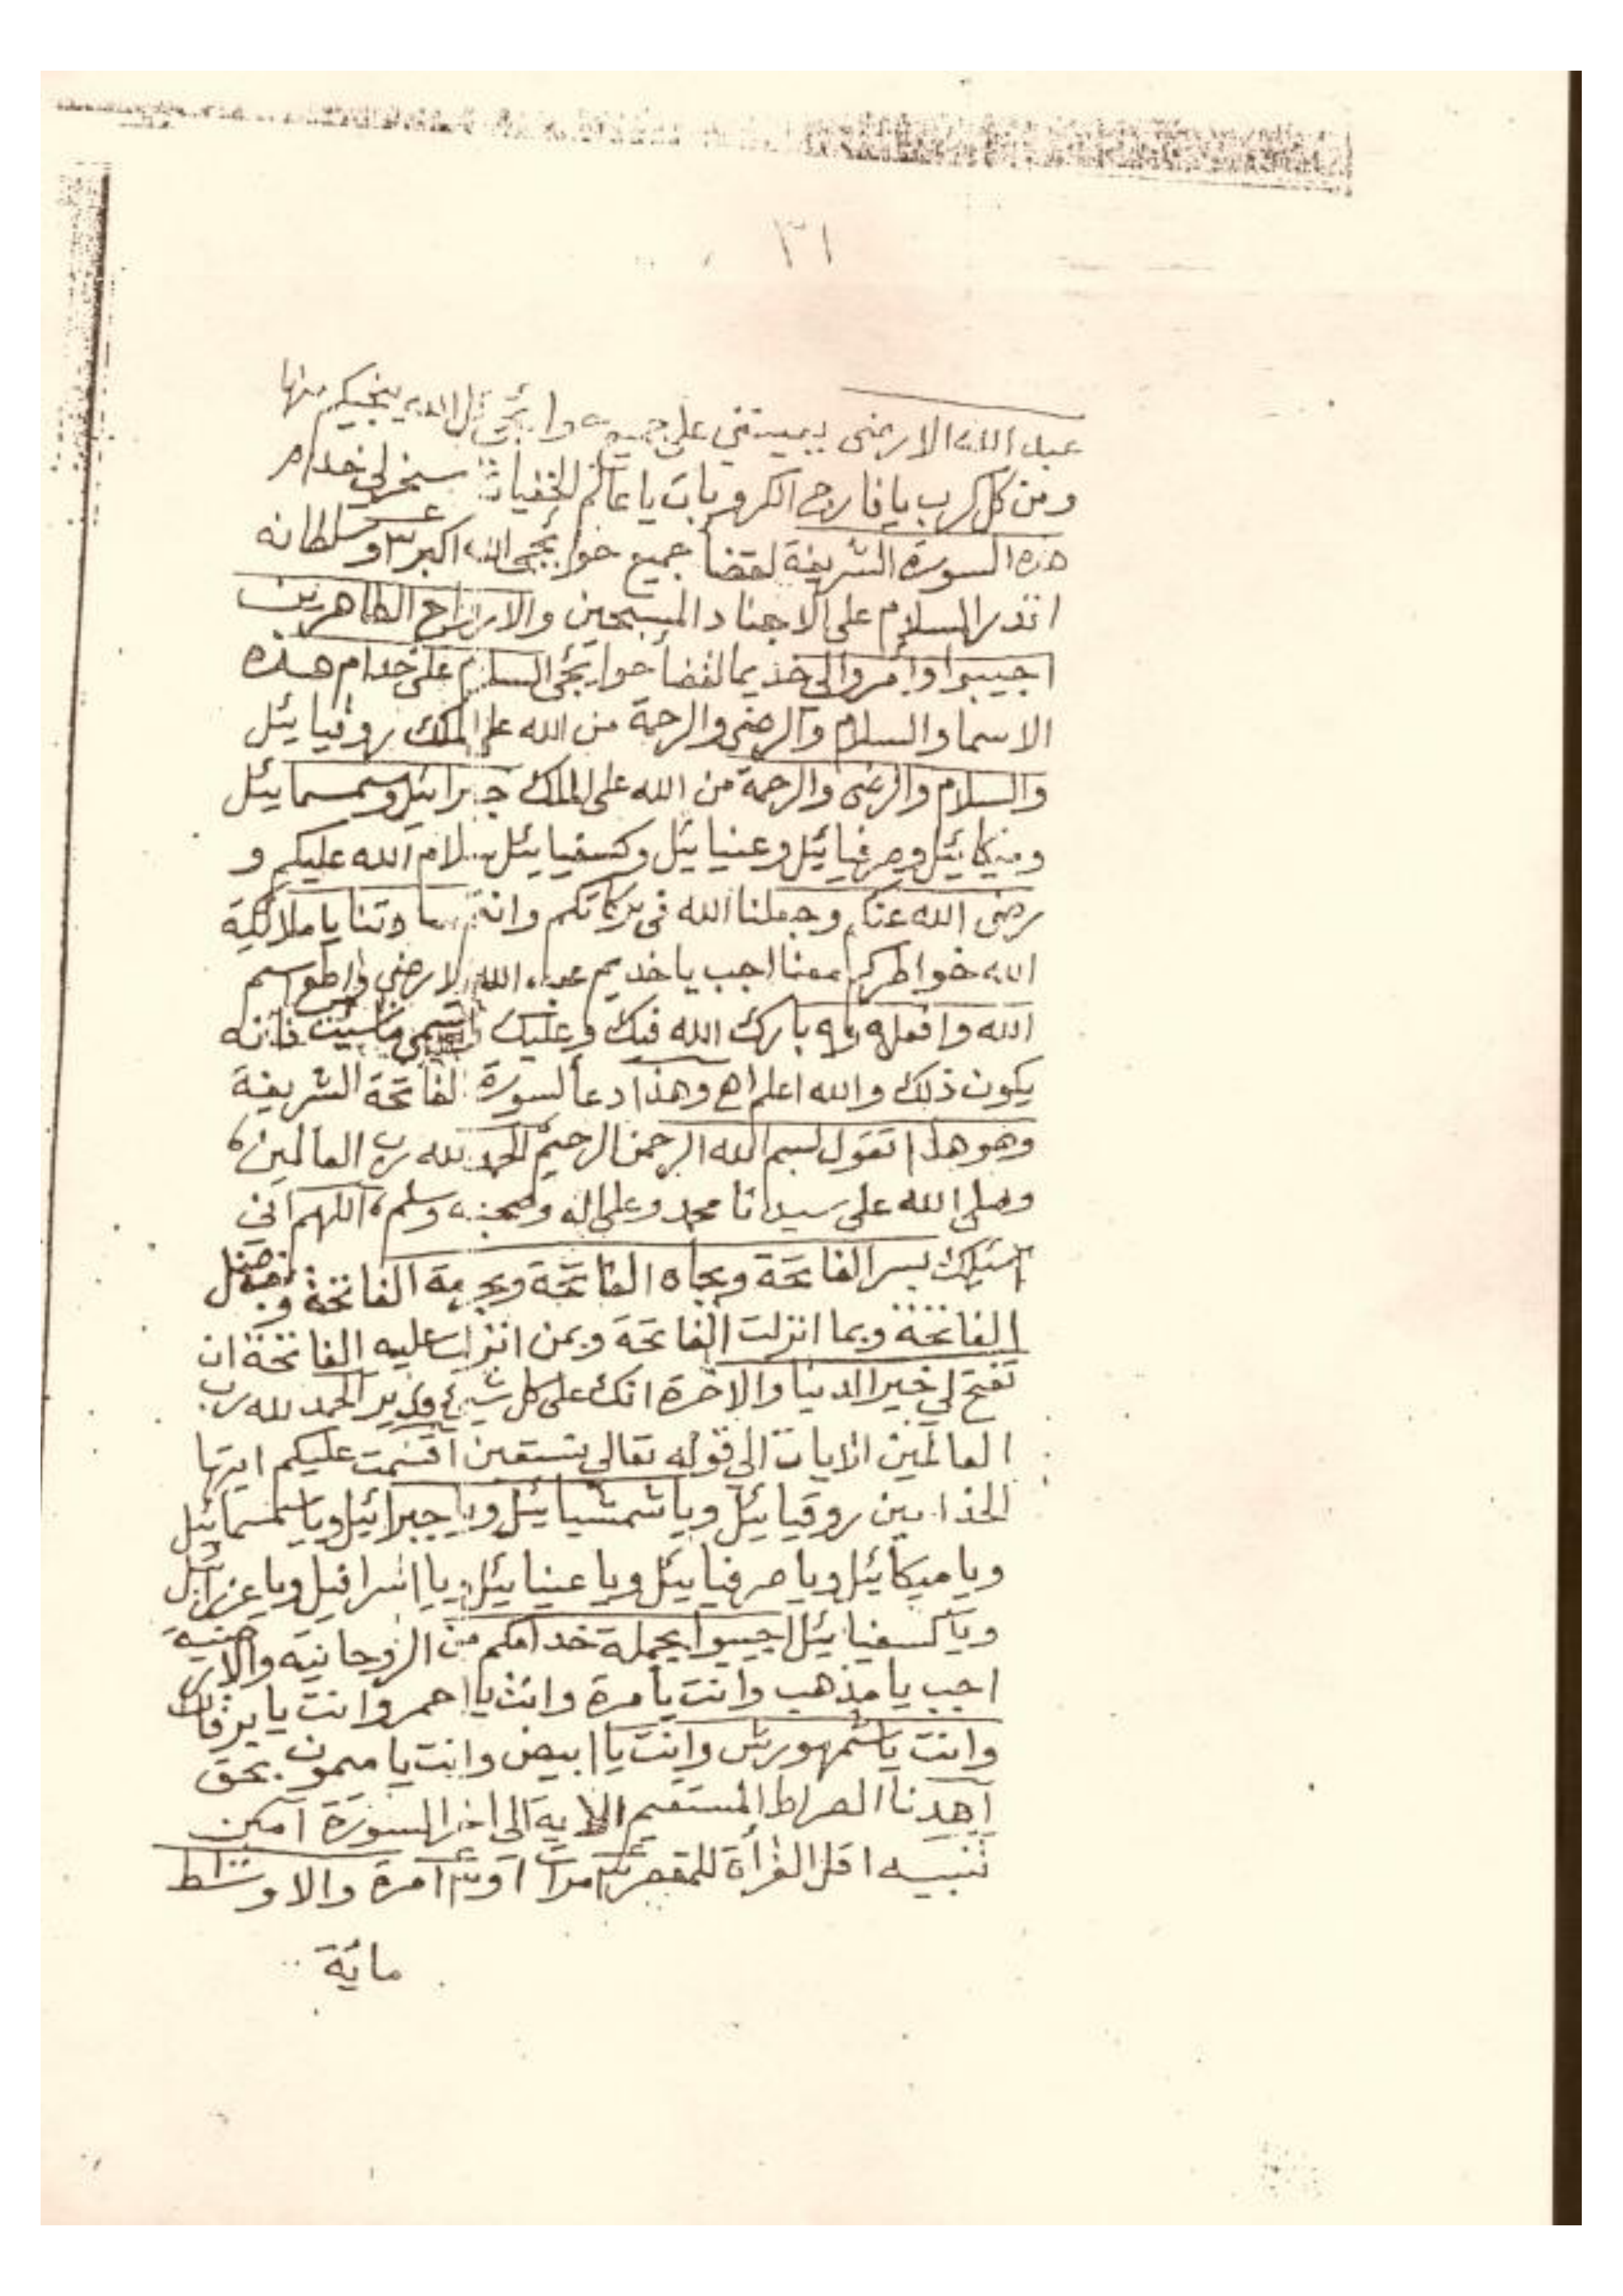 ٣١
عبد الله الارضى يميتني على جميع حوايجي قل الله ينجيكم منها
ومن كل كرب يا فارج الكروبات يا عالم الخفيات سخر لي خدام
هذه السورة الشريفة لقضا جميع حوايجى الله اكبر ٣ وسلطانه
السلام على الاجناد المسبحين والارواح الطاهرين
اجيبوا وامروا لي خديما لقضا حوايجى السلام على خدام هذه
الاسما والسلام والرضى والرحمة من الله على الملك روقيايئل
والسلام والرضى والرحمة من الله على الملك جبرائيل وسمسمايئل
وميكايئل وصرفيايئل وعنيايئل وكسفيايئل سلام الله عليكم و
رضى الله عنكم وجعلنا الله فى بركاتكم وانتم ساداتنا يا ملائكة
الله خواطركم معنا اجب يا خديم عبد الله الارضي واطع اسم
الله وافعل بارك الله فيك وعليك تسمي ماشيئت فانه
يكون ذلك والله اعلم اهـ وهذا دعا لسورة الفاتحة الشريفة
وهو هذا تقول بسم الله الرحمن الرحيم الحمد لله رب العالمين
وصلى الله على سيدنا محمد وعلى اله وصحبه وسلم اللهم اني
اسئلك بسر الفاتحة وبجاه الفاتحة وبحرمة الفاتحة وبفضل
الفاتحة وبما انزلت الفاتحة وبمن انزلت عليه الفاتحة ان
تفتح لي خير الدنيا والاخرة انك على كل شيئ قدير الحمد لله رب
العالمين الايات الى قوله تعالى نستعين اقسمت عليكم ايتها
الخدامين روقيايئل ويا شمشيايئل ويا جبرائيل ويا سمسمايئل
ويا ميكايئل ويا صرفيايئل ويا عنيايئل ويا اسرافيل ويا عزرائيل
ويا كسفيايئل اجيبوا بجملة خدامكم من الروحانية والارضية
اجب يا مذهب وانت يا مرة وانت يا احمر وانت يا برقان
وانت يا شمهورش وانت يا ابيض وانت يا ميمون بحق
اهدنا الصراط المستقيم الاية الى اخر السورة امين
تنبيه اقل القرأة للمقصر مرات او مرة والاوسط
ماية